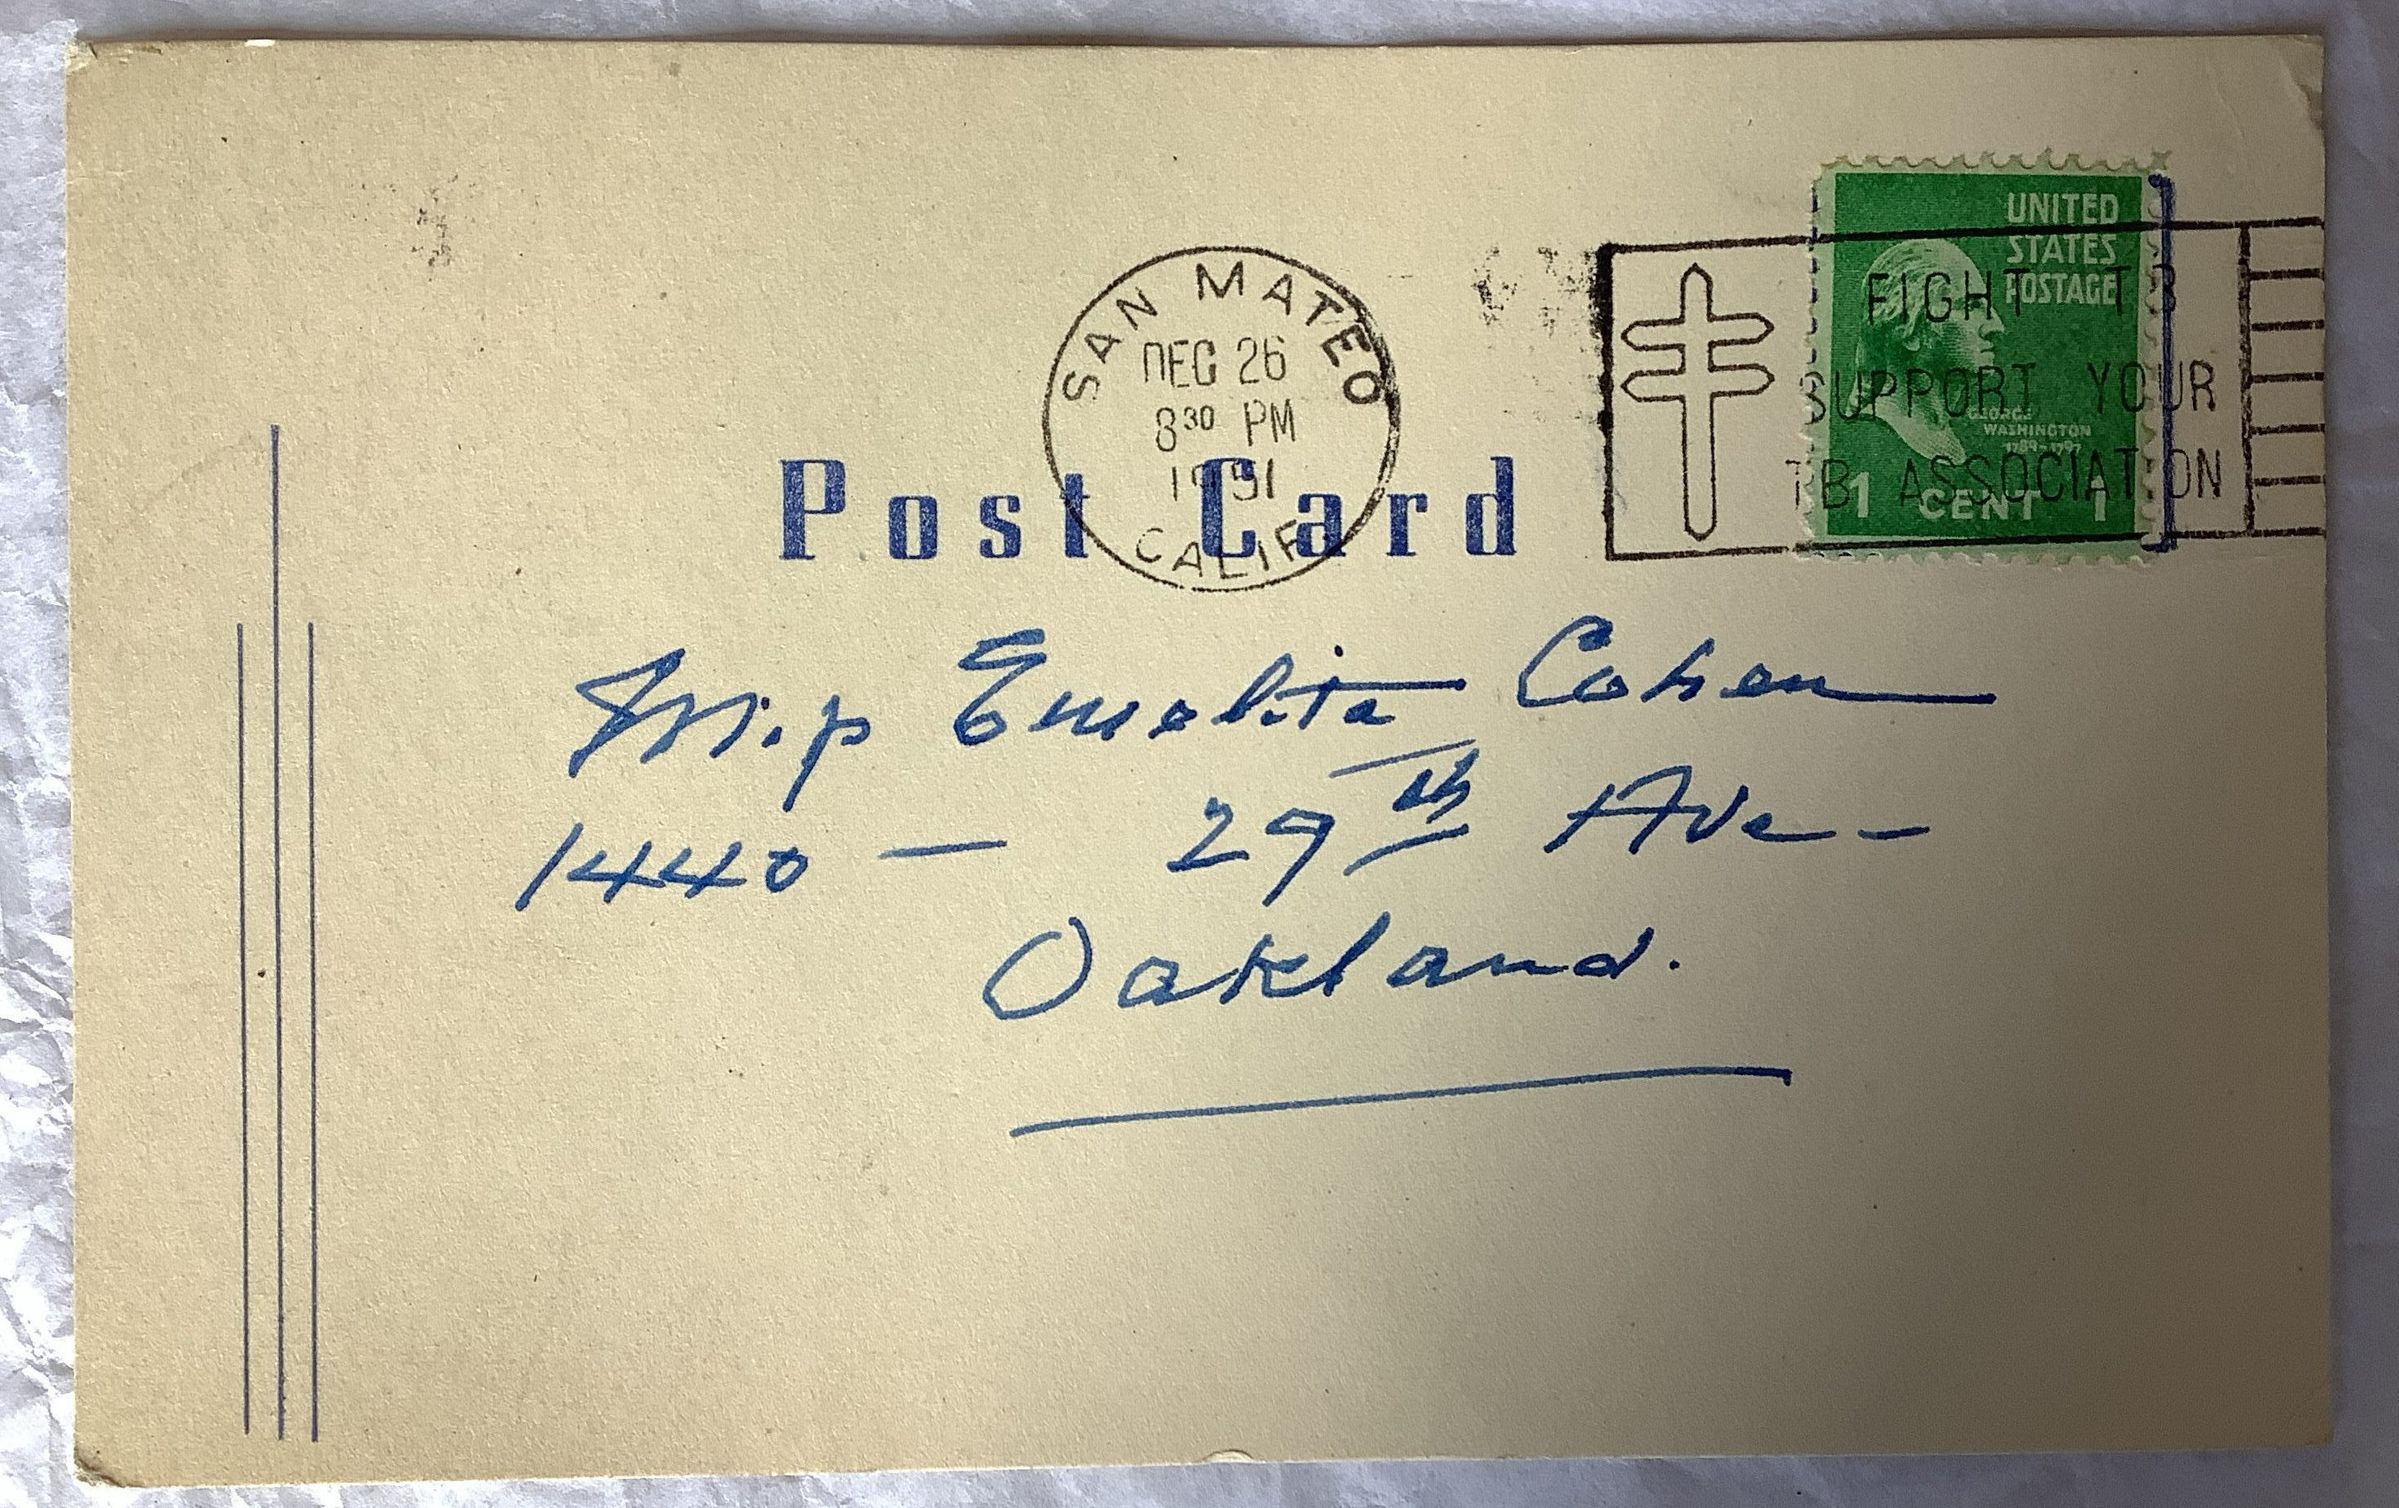 SAN MATEO
DEC 26
8³⁰ PM
1951
CALIF
UNITED
STATES
POSTAGE
GEORGE
WASHINGTON
1789-1797
1 CENT 1
FIGHT TB
SUPPORT YOUR
TB ASSOCIATION
Post Card
Miss Emelita Cohen
1440 — 29th Ave-
Oakland.